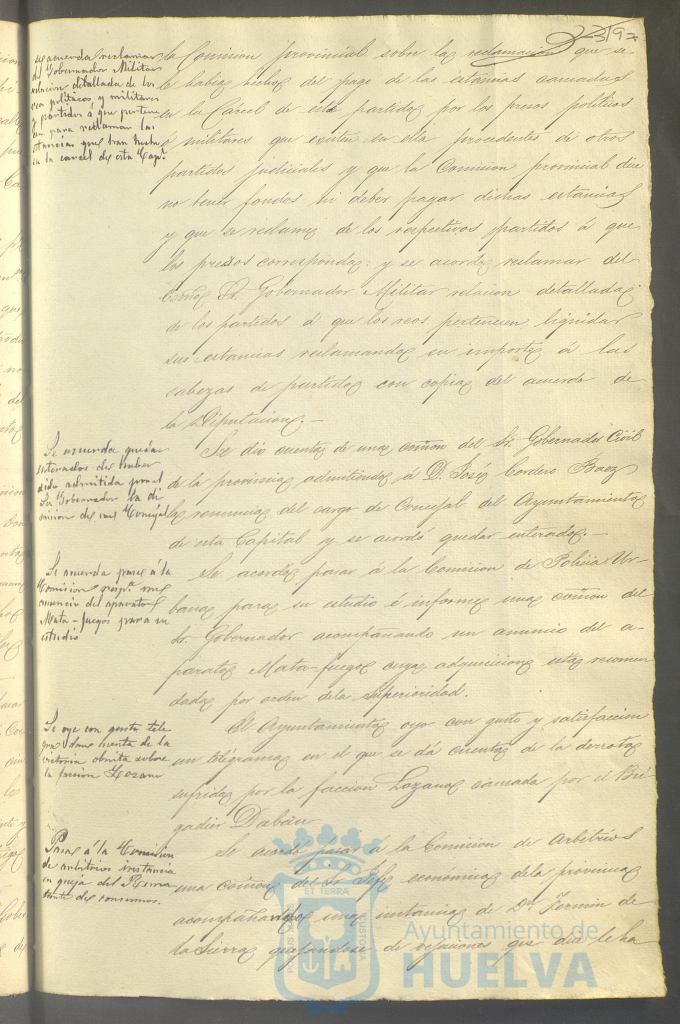 la Comision provincial sobre la reclamacion que se
le habia hecho del pago de las estancias causadas
en la Carcel de este partido por los presos politicos
ó militares que existen en ella procedentes de otros
partidos judiciales y que la Comision provincial dice
no tener fondos ni deber pagar dichas estancias
y que se reclame de los respectivos partidos á que
los presos correspondan: y se acordó reclamar del
Sr. Gobernador Militar relacion detallada
de los partidos á que los reos pertenecen liquidar
sus estancias reclamando su importe á las
cabezas de partido con copia del acuerdo de
la Diputacion.—
Se acuerda reclamar
del Gobernador Militar
relacion detallada de los
reos politicos y militares
y partidos á que perten-
cen para reclamar las
estancias que han hecho
en la carcel de esta Capl.
Se dio cuenta de una comon del Sr. Gobernador Civil
de la provincia admitiendo á D. José Cordero Baez
la renuncia del cargo de Concejal del Ayuntamiento
de esta Capital y se acordó quedar enterado.—
Se acuerda quedar
enterados de haber
sido admitida por el
Sr. Gobernador la di
mision de un Concejal
Se acordó pasar á la Comision de Policia Ur-
bana para su estudio é informe una comon del
Sr. Gobernador acompañando un anuncio del a-
parato Mata-fuego cuya adquisicion está recomen
dada por orden dela Superioridad.
Se acuerda pase á la
Comision respa. un
anuncio del aparato
Mata-fuegos para su
estudio
El Ayuntamiento oyó con gusto y satisfaccion
un telégrama en el que se dá cuenta de la derrota
sufrida por la faccion Lozano causada por el Bri
gadier Daban
Se oye con gusto tele
grama dando cuenta de la
victoria obnita sobre
la faccion Lozano
Se acordó pasar á la Comision de Arbitrios
una comon del Sr. Jefe económico dela provincia
acompañando una instancia de Dn. Fermin de
la Sierra quejandose de vejaciones que dice le ha
Pase á la Comision
de arbitrios instancia
en queja del Rema-
tante de consumos.
Ayuntamiento de
HUELVA